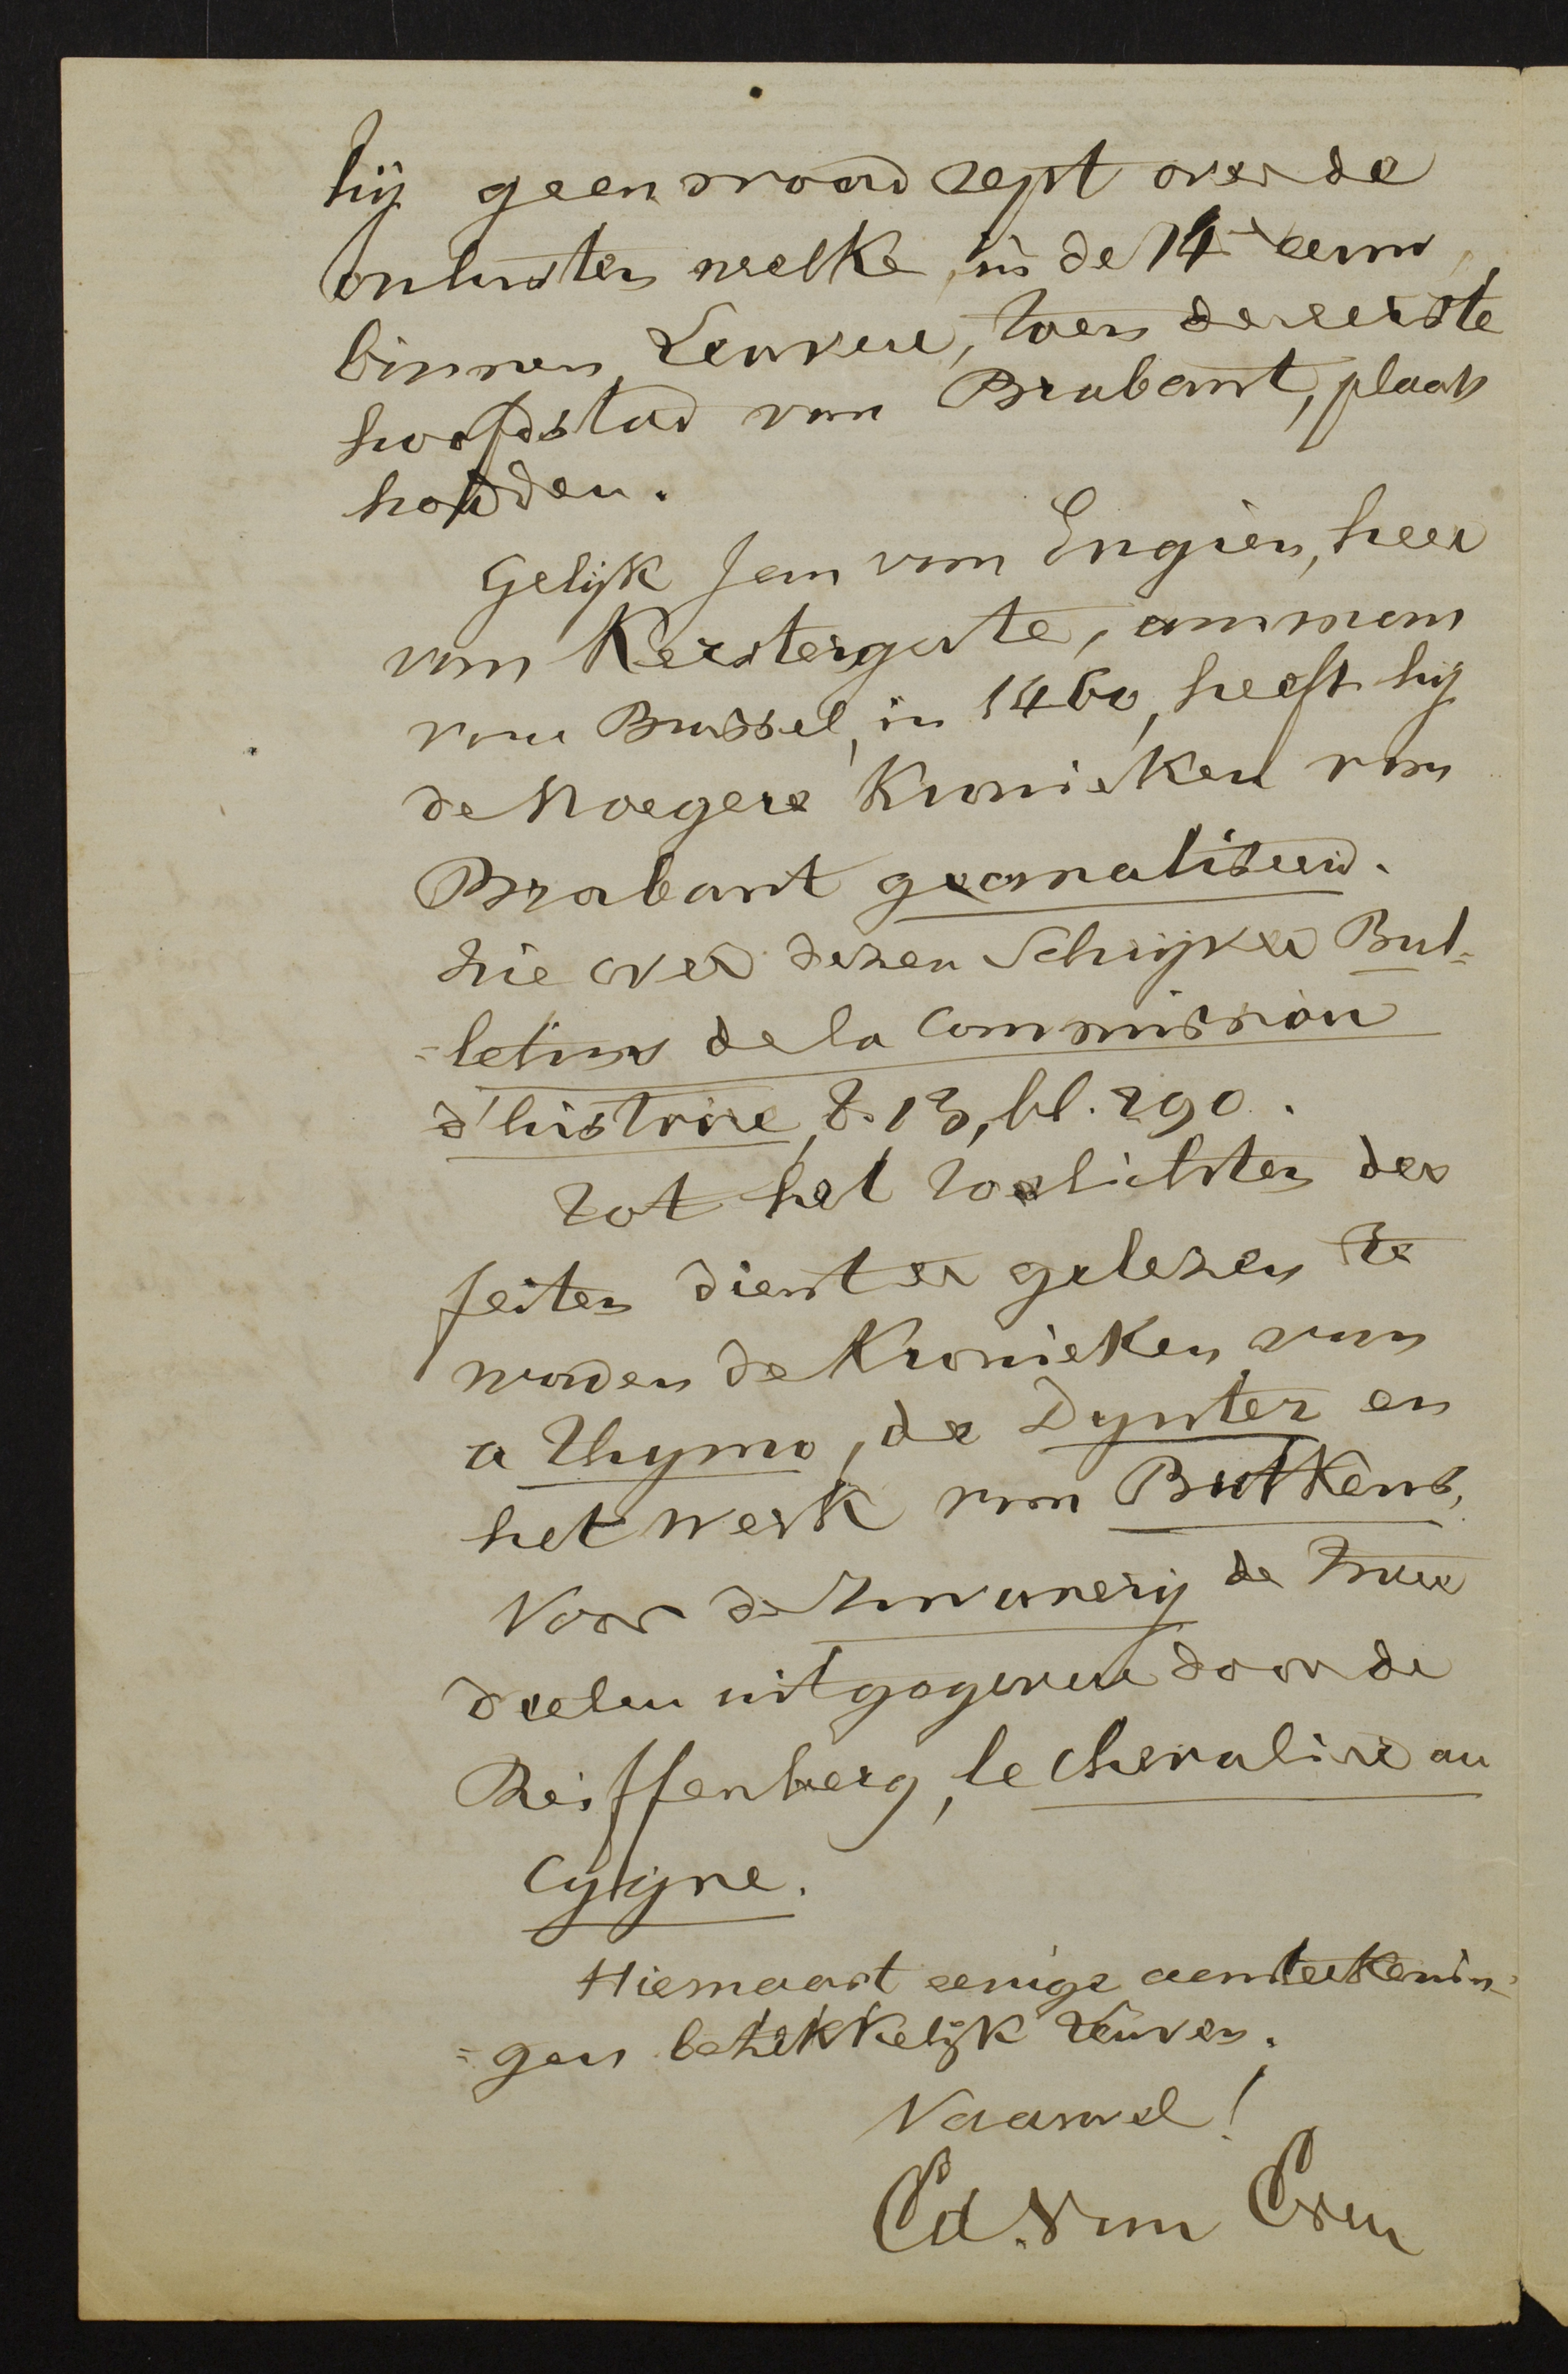 hij geen woord rept over de
onlusten welke, in de 14e eeuw,
binnen Leuven, toen der eerste
hoofdstad van Brabant, plaats
hadden.
Gelijk Jan van Engien, heer
van Kestergate, amman
van Brussel, in 1460, heeft hij
de vroegere Kronieken van
Brabant geanaliseerd.
Zie over dezen Schrijver Bul=
=letins de la Commission
d'histoire, t. 13, bl. 290.
Tot het toelichten der
feiten dient er gelezen te
worden de Kronieken van
a Thymo, de Dynter en
het werk van Butkens.
Voor de Zwanerij de twee
deelen uitgegeven door de
Reiffenberg, le Chevalier au
Cygne.
Hiernaast eenige aanteekenin=
=gen betrekkelijk Leuven.
Vaarwel!
Ed. Van Even